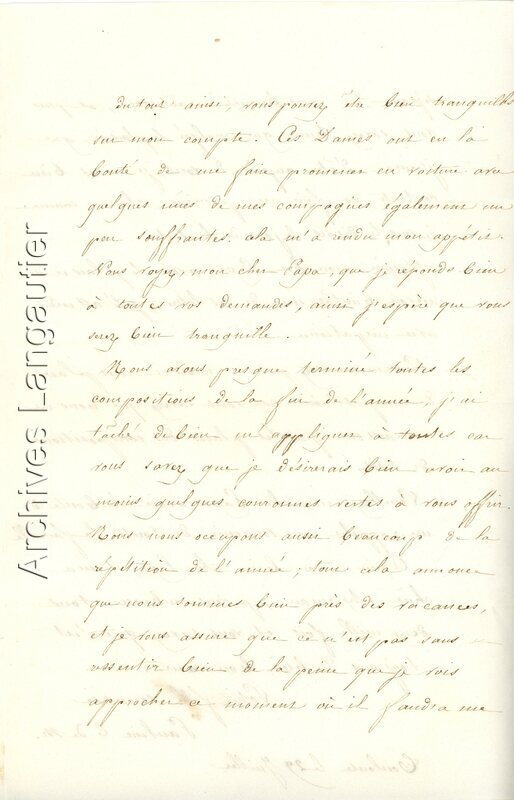 du tout ainsi, vous pouvez être bien tranquilles
sur mon compte. Ces Dames ont eu la
bonté de me faire promener en voiture avec
quelques unes de mes compagnes également un
peu souffrantes. cela m'a rendu mon appétit.
Vous voyez, mon cher Papa, que je réponds bien
à toutes vos demandes, ainsi j'espère que vous
serez bien tranquille.
Nous avons presque terminé toutes les
compositions de la fin de l'année, j'ai
tâché de bien m'appliquer à toutes car
vous savez que je désirerais bien avoir au
moins quelques couronnes vertes à vous offrir.
Nous nous occupons aussi beaucoup de la
répétition de l'année ; tout cela annonce
que nous sommes bien près des vacances,
et je vous assure que ce n'est pas sans
ressentir bien de la peine que je vois
approcher ce moment où il faudra me
Archives Langautier